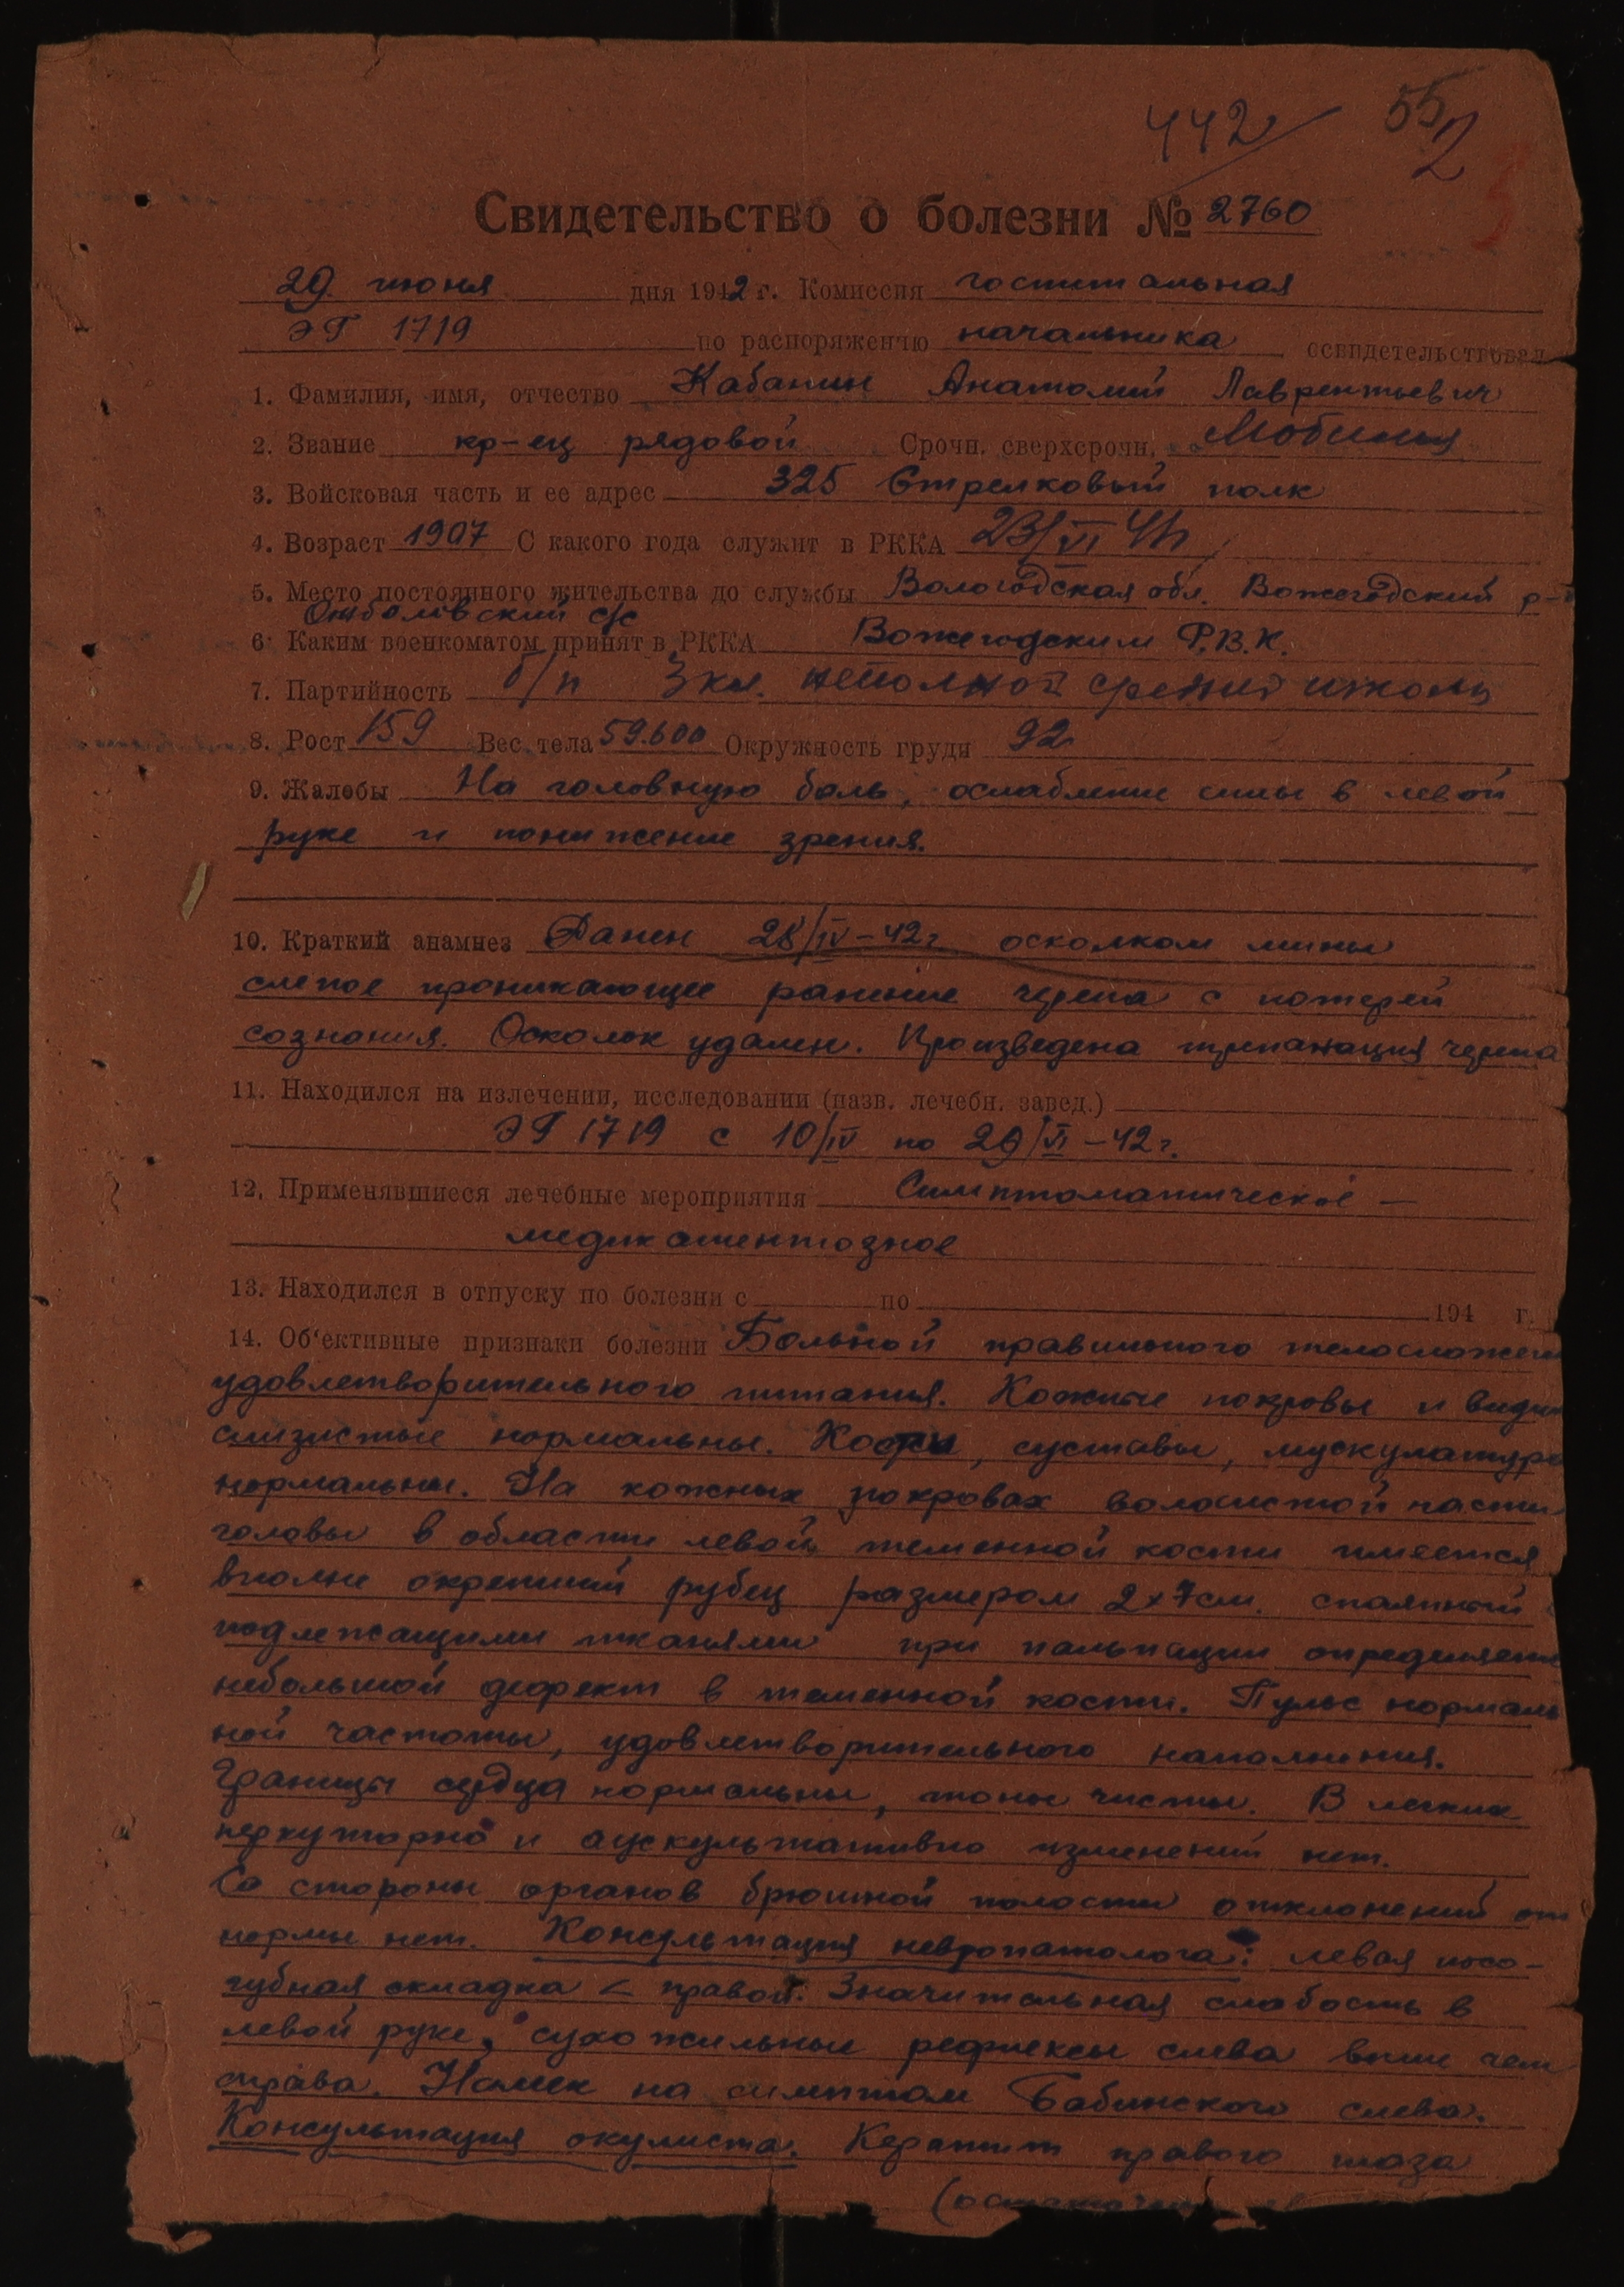 442/ 55 2
Свидетельство о болезни № 2760
29 июня дня 1942 г. Комиссия госпитальная
ЭГ 1719 по распоряжению начальника освидетельствовал
1. Фамилия, имя, отчество Кабанин Анатолий Лаврентьевич
2. Звание кр-ец рядовой Срочн. сверхсрочн.
3. Войсковая часть и ее адрес 325 Стрелковый полк
4. Возраст 1907 С какого года служит в РККА 23/VI 41
5. Место постоянного жительства до службы Вологодская обл. Вожегодский р-
с/с
6. Каким военкоматом принят в РККА Вожегодским Р.В.К.
7. Партийность б/п 3 кл. неполной средней школы
8. Рост 159 Вес тела 59.600 Окружность груди 92
9. Жалобы На головную боль, ослабление силы в левой
руке и понижение зрения.
10. Краткий анамнез Ранен 28/IV-42г осколком мины
слепое проникающее ранение черепа с потерей
сознания. Осколок удален. Произведена трепанация черепа
11. Находился на излечении, исследовании (назв. лечебн. завед.)
ЭГ 1719 с 10/IV по 29/VI-42г.
12. Применявшиеся лечебные мероприятия Симптоматическое –
медикаментозное
13. Находился в отпуску по болезни с по 194 г.
14. Об'ективные признаки болезни Больной правильного телосложен
удовлетворительного питания. Кожные покровы и види
слизистые нормальны. Кости, суставы, мускулатура
нормальны. На кожных покровах волосистой части
головы в области левой теменной кости имеется
вполне окрепший рубец размером 2х7см. спаянный с
подлежащими тканями при пальпации определяетс
небольшой дефект в теменной кости. Пульс нормаль
ной частоты, удовлетворительного наполнения.
Границы сердца нормальны, тоны чисты. В легких
перкуторно и аускультативно изменений нет.
Со стороны органов брюшной полости отклонений от
нормы нет. Консультация невропатолога: левая носо-
губная складка < правой. Значительная слабость в
левой руке, сухожильные рефлексы слева выше чем
справа. Намек на симптом Бабинского слева.
Консультация окулиста. Кератит правого глаза